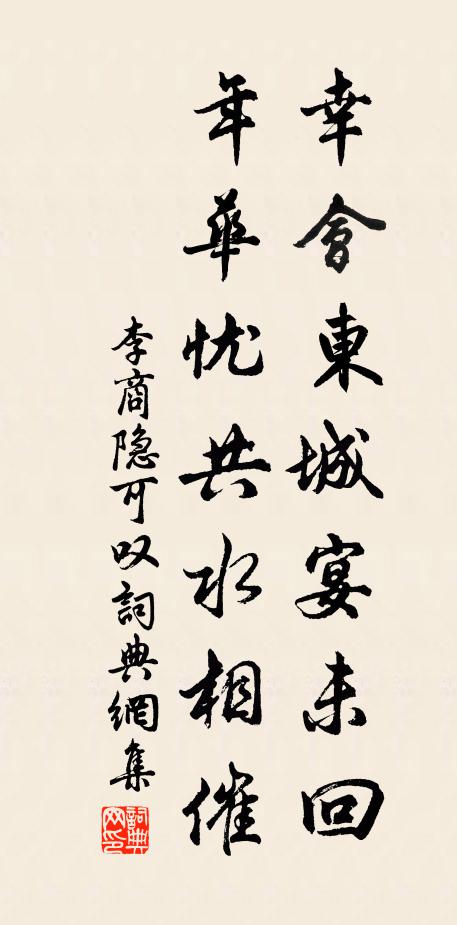 幸會東城宴未回
年華忧共水相催
李商隐可叹詞典網集
詞典
网印